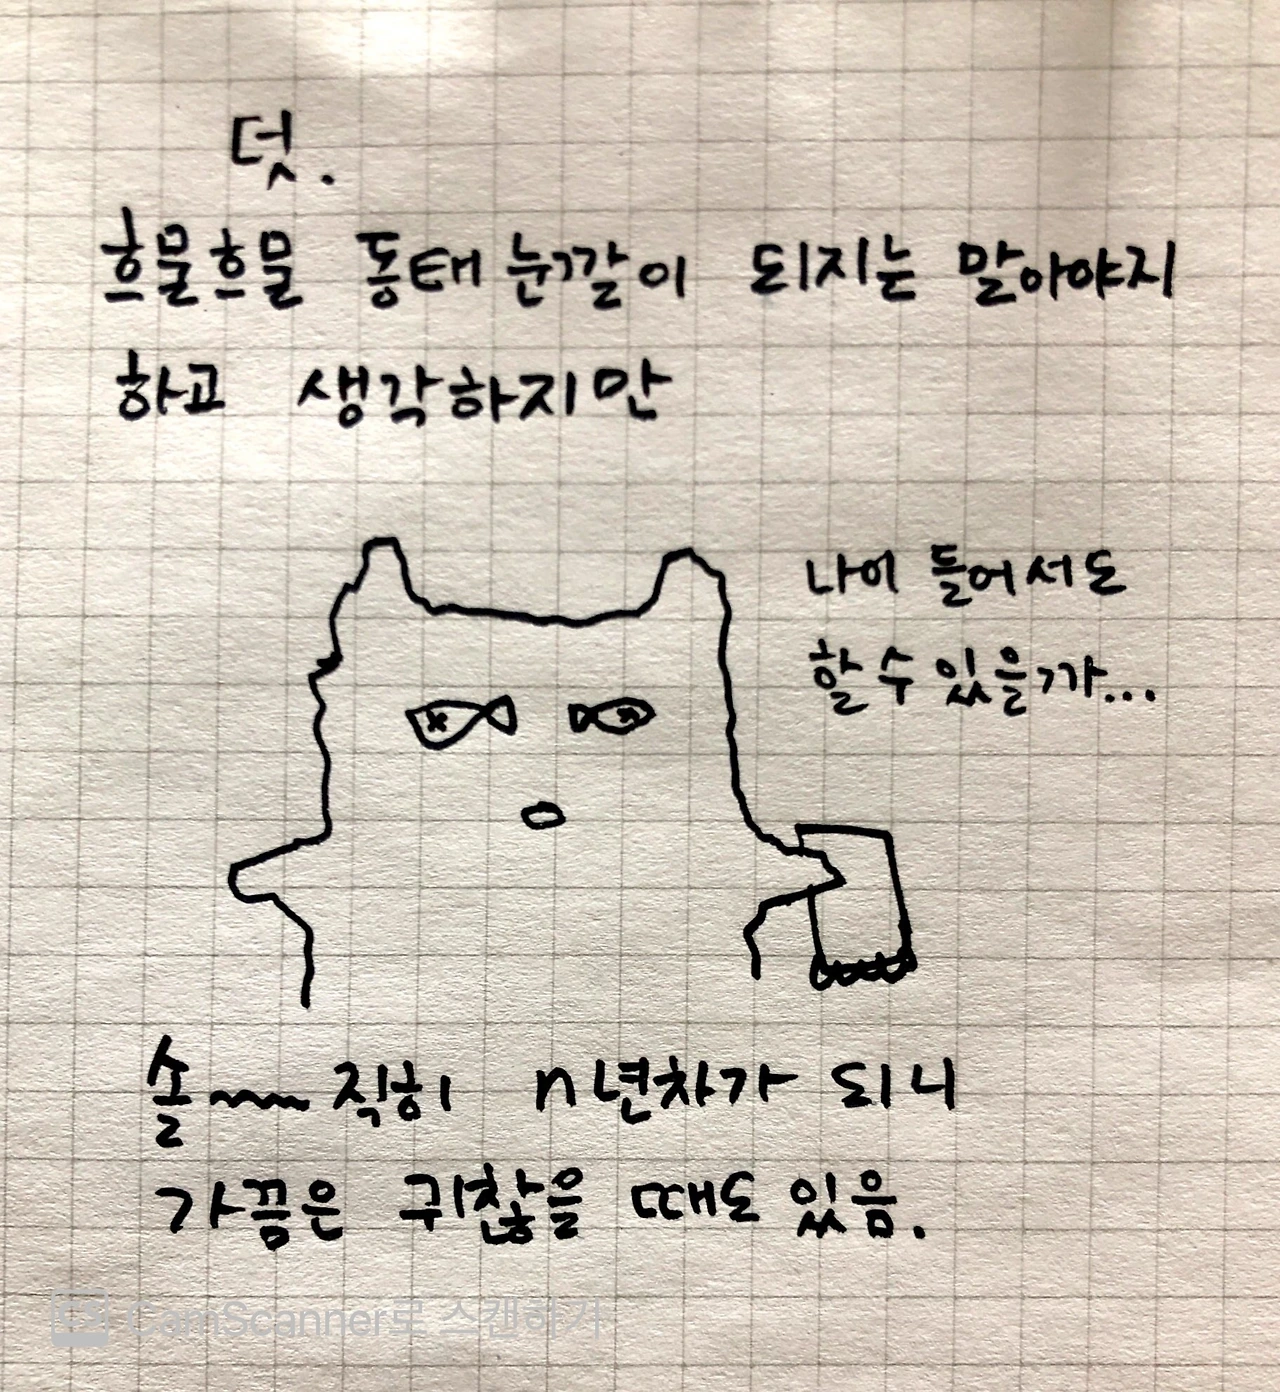 덧.
흐물흐물 동태 눈깔이 되지는 말아야지
하고 생각하지만
나이 들어서도
할 수 있을까...
솔~~~직히 n년차가 되니
가끔은 귀찮을 때도 있음.
CS CamScanner로 스캔하기